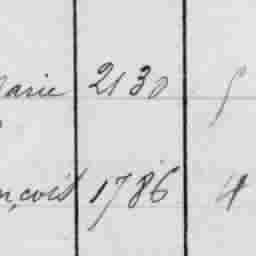 arie 2130 5
nçois 1786 4